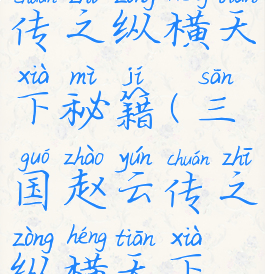 chuán zhī zòng héng tiān
传之纵横天
xià mì jí sān
下秘籍(三
guó zhào yún chuán zhī
国赵云传之
zòng héng tiān xià
纵横天下